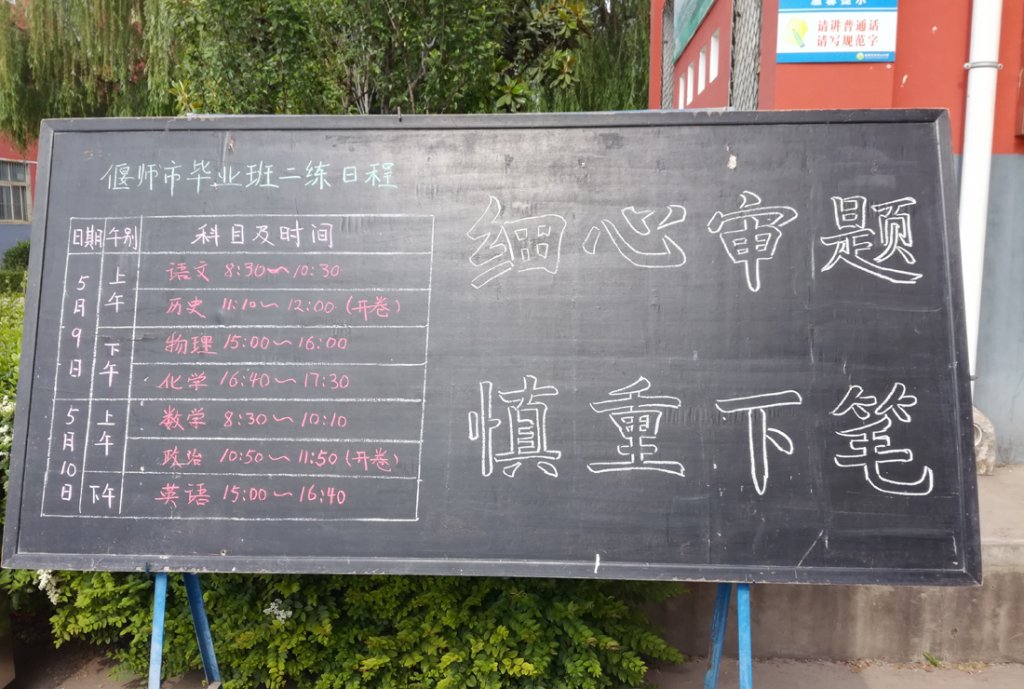 温馨提示
请讲普通话
请写规范字
偃师市毕业班二练日程
日期 午别 科目及时间
5月9日 上午 语文 8:30～10:30
历史 11:10～12:00（开卷）
下午 物理 15:00～16:00
化学 16:40～17:30
5月10日 上午 数学 8:30～10:10
政治 10:50～11:50（开卷）
下午 英语 15:00～16:40
细心审题
慎重下笔